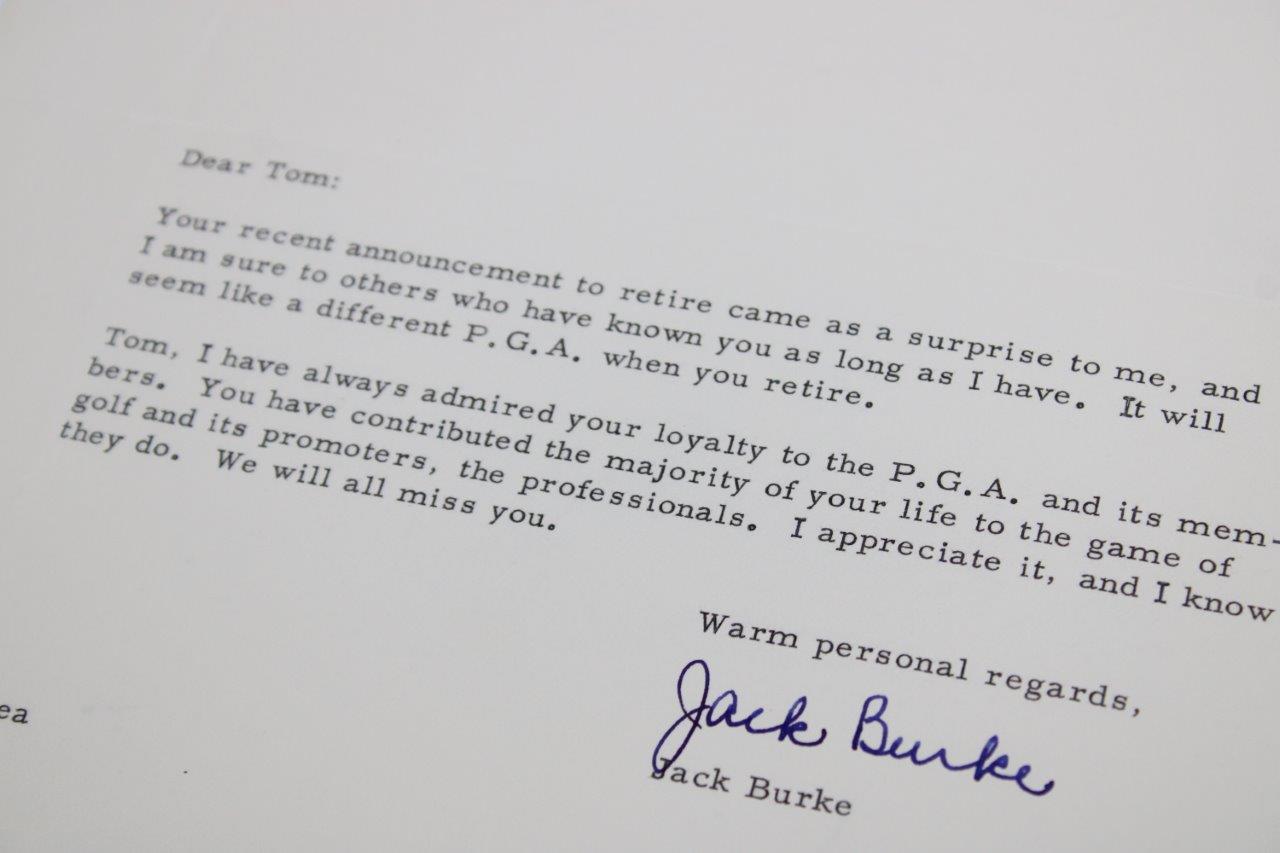 Dear Tom:
Your recent announcement to retire came as a surprise to me, and
I am sure to others who have known you as long as I have. It will
seem like a different P.G.A. when you retire.
Tom, I have always admired your loyalty to the P.G.A. and its mem-
bers. You have contributed the majority of your life to the game of
golf and its promoters, the professionals. I appreciate it, and I know
they do. We will all miss you.
Warm personal regards,
Jack Burke
Jack Burke
ea